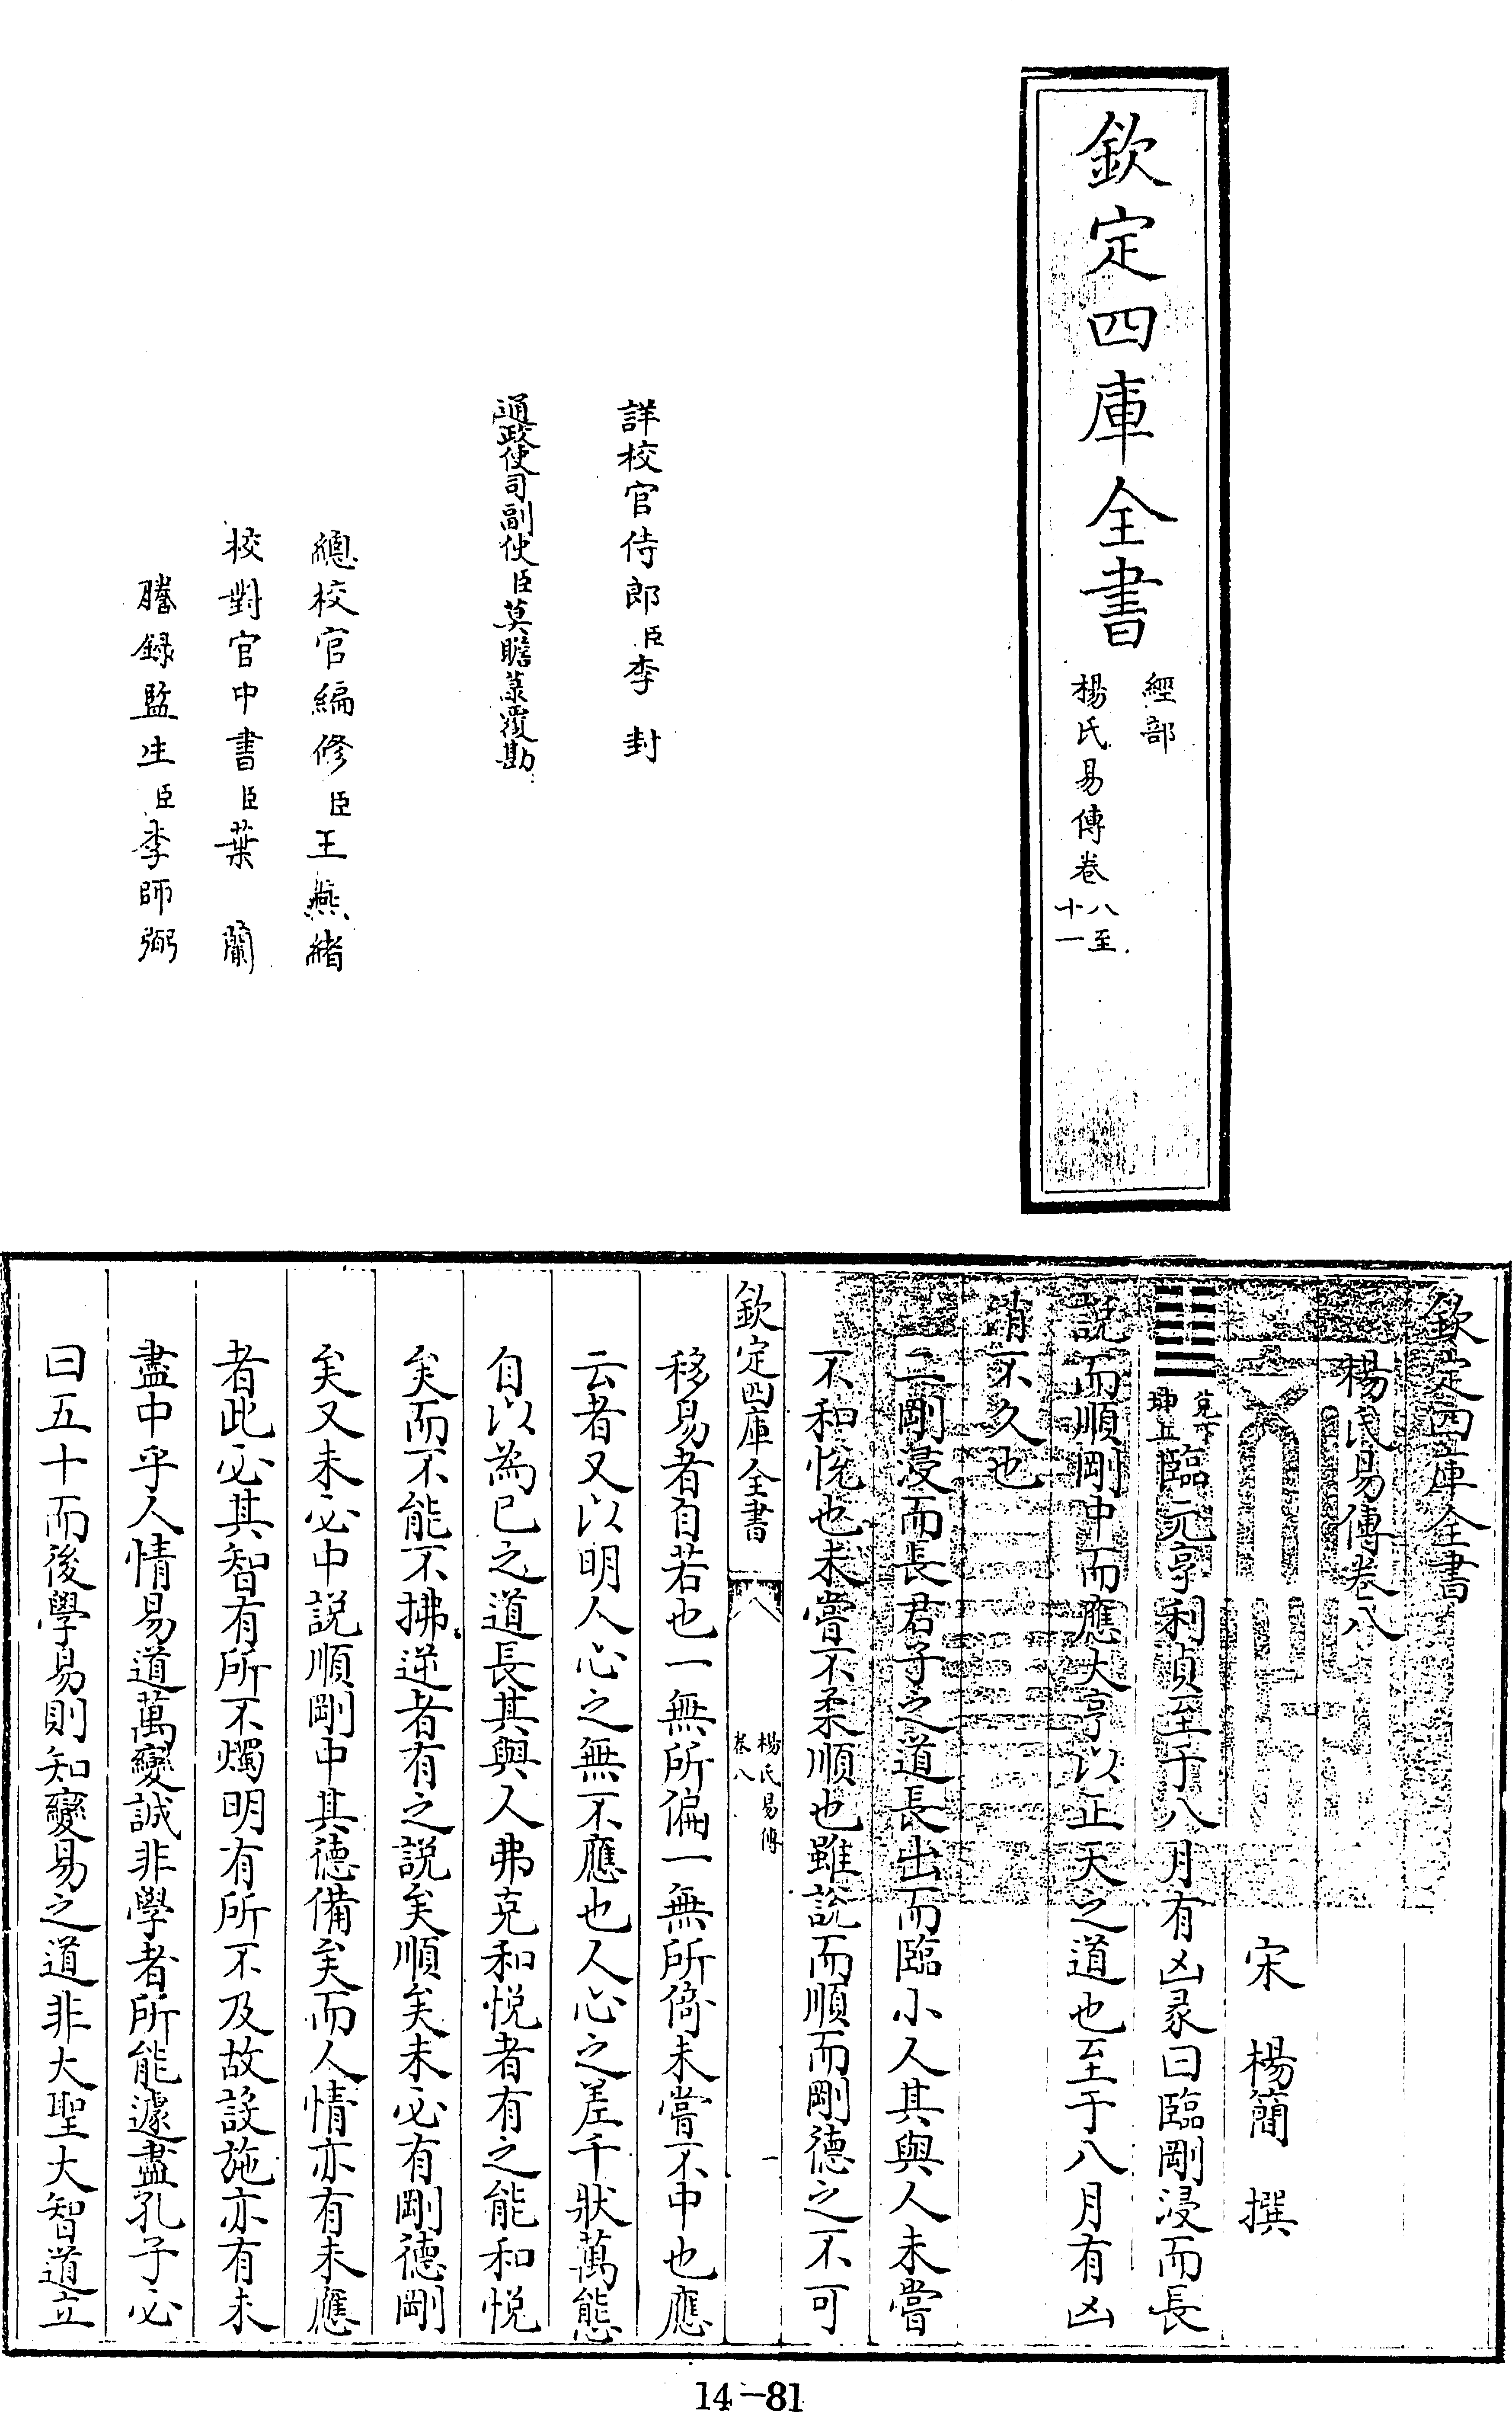 欽定四庫全書
經部
楊氏易傳卷八至十一
詳校官侍郎臣李封
通政使司副使臣莫瞻菉覆勘
總校官編修臣王燕緒
校對官中書臣葉蘭
謄録監生臣李師弼
欽定四庫全書
楊氏易傳卷八
宋 楊簡 撰
䷒兌下坤上臨元亨利貞至于八月有凶彖曰臨剛浸而長
説而順剛中而應大亨以正天之道也至于八月有凶
消不久也
二剛浸而長君子之道長出而臨小人其與人未嘗
不和悅也未嘗不柔順也雖説而順而剛德之不可
欽定四庫全書
楊氏易傳
卷八
一
移易者自若也一無所偏一無所倚未嘗不中也應
云者又以明人心之無不應也人心之差千狀萬態
自以為已之道長其與人弗克和悅者有之能和悅
矣而不能不拂逆者有之説矣順矣未必有剛德剛
矣又未必中説順剛中其德備矣而人情亦有未應
者此必其智有所不燭明有所不及故設施亦有未
盡中乎人情易道萬變誠非學者所能遽盡孔子必
曰五十而後學易則知變易之道非大聖大智道立
14-81